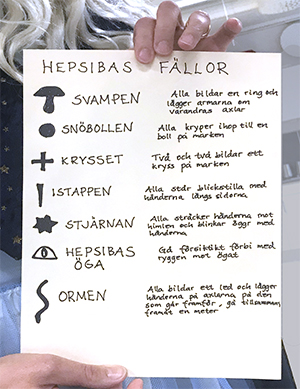 HEPSIBAS FÄLLOR
SVAMPEN
Alla bildar en ring och
lägger armarna om
varandras axlar
SNÖBOLLEN
Alla kryper ihop till en
boll på marken
KRYSSET
Två och två bildar ett
kryss på marken
ISTAPPEN
Alla står blickstilla med
händerna längs sidorna
STJÄRNAN
Alla sträcker händerna mot
himlen och blinkar öggr med
händerna
HEPSIBAS
ÖGA
Gå försiktikt förbi med
ryggen mot ögat
ORMEN
Alla bildar ett led och lägger
händerna på axlarna på den
som går framför, gå tillsammans
framåt en meter